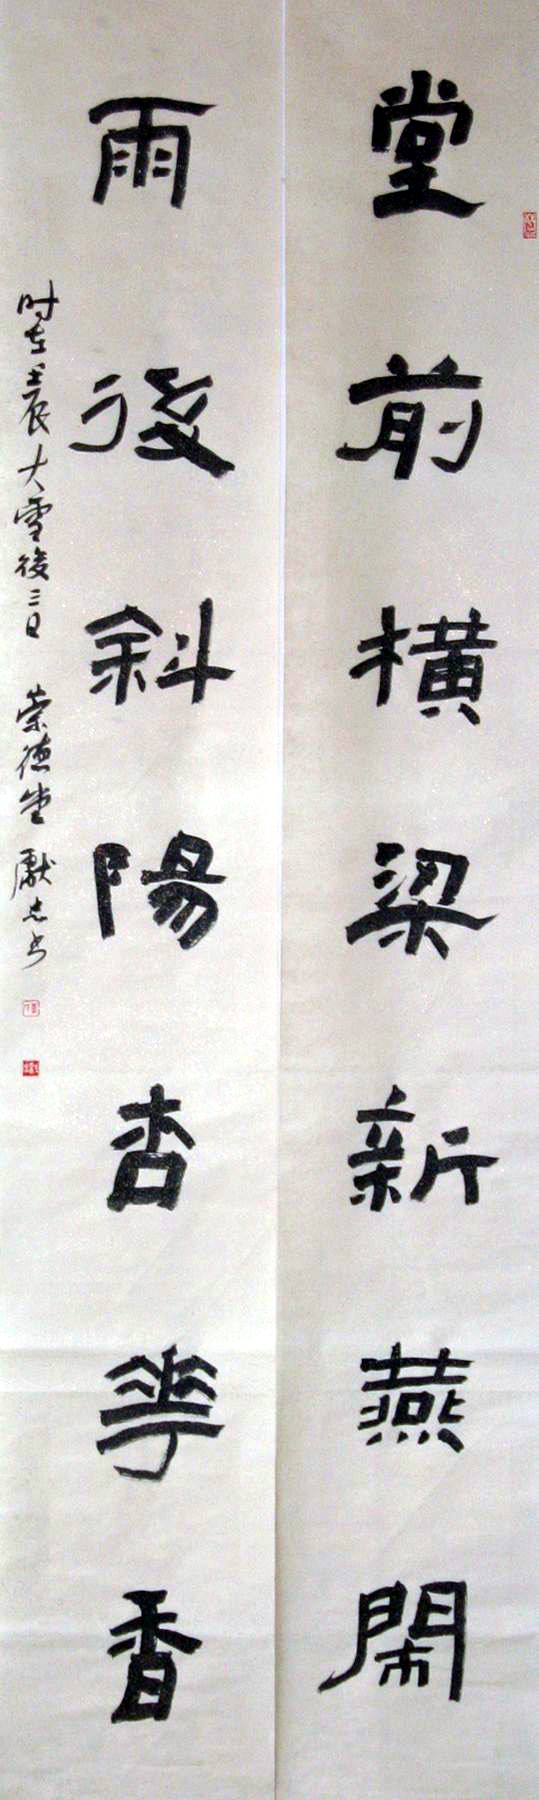 堂前橫梁新燕閑
雨後斜陽杏華香
时在壬辰大雪後三日 崇德堂 獻忠书